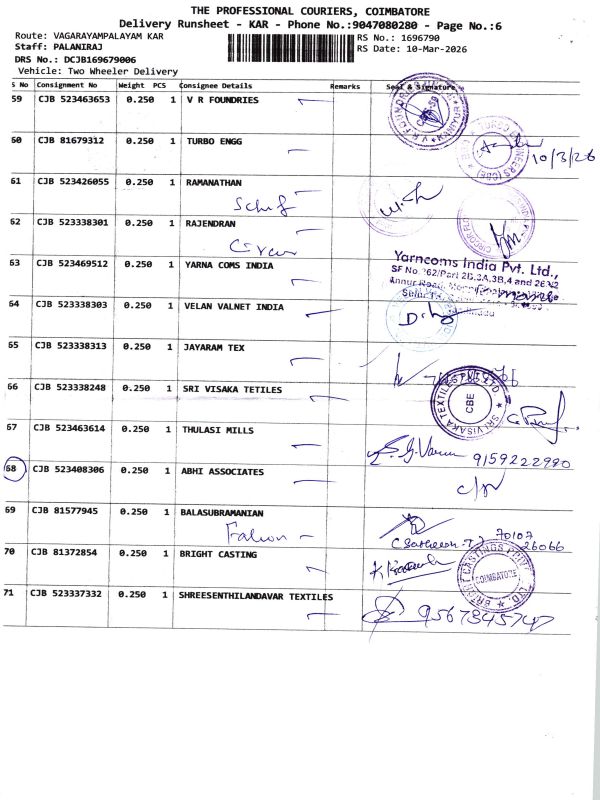 THE PROFESSIONAL COURIERS, COIMBATORE
Delivery Runsheet - KAR - Phone No.:9047080280 - Page No.:6
Route: VAGARAYAMPALAYAM KAR RS No.: 1696790
Staff: PALANIRAJ RS Date: 10-Mar-2026
DRS No.: DCJB169679006
Vehicle: Two Wheeler Delivery
S No Consignment No Weight PCS Consignee Details Remarks Seal & Signature
59 CJB 523463653 0.250 1 V R FOUNDRIES
60 CJB 81679312 0.250 1 TURBO ENGG
10/3/26
61 CJB 523426055 0.250 1 RAMANATHAN
62 CJB 523338301 0.250 1 RAJENDRAN
63 CJB 523469512 0.250 1 YARNA COMS INDIA
Yarncoms India Pvt. Ltd.,
64 CJB 523338303 0.250 1 VELAN VALNET INDIA
65 CJB 523338313 0.250 1 JAYARAM TEX
66 CJB 523338248 0.250 1 SRI VISAKA TETILES
SRI VISAKA TEXTILES PVT LTD. CBE
67 CJB 523463614 0.250 1 THULASI MILLS
9159222990
68 CJB 523408306 0.250 1 ABHI ASSOCIATES
69 CJB 81577945 0.250 1 BALASUBRAMANIAN
Falcon
70107
26066
70 CJB 81372854 0.250 1 BRIGHT CASTING
COIMBATORE
71 CJB 523337332 0.250 1 SHREESENTHILANDAVAR TEXTILES